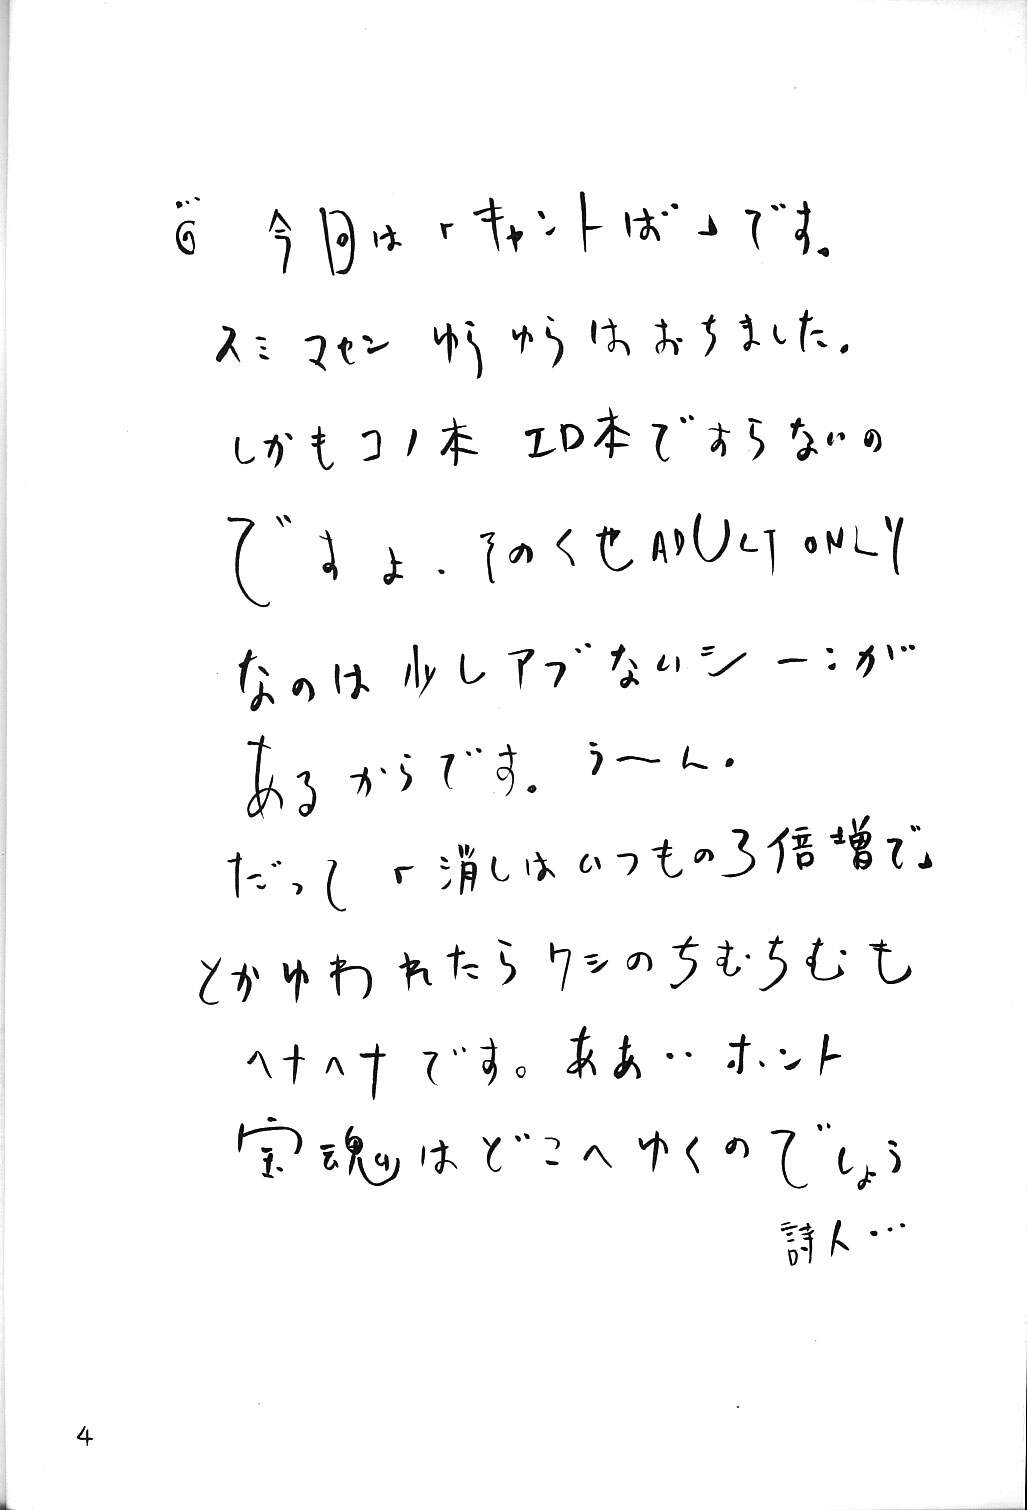 今回は「キャントば」です。
スミマセン ゆらゆらはおちました。
しかもコノ本 エロ本ですらないの
ですよ. そのくせADULT ONLY
なのは少しアブないシーンが
あるからです。うーん.
だって「消しはいつもの3倍増で」
とかゆわれたらワシのちむちむも
ヘナヘナです。ああ‥ホント
宝魂はどこへゆくのでしょう
詩人…
4